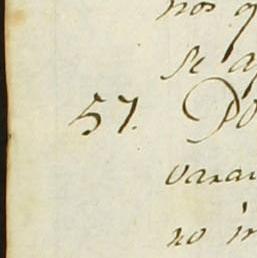 nos q
se a
57. Do
varan
no in